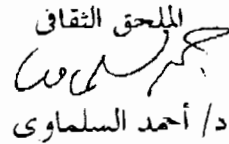 الملحق الثقافى
د/ أحمد السلماوى